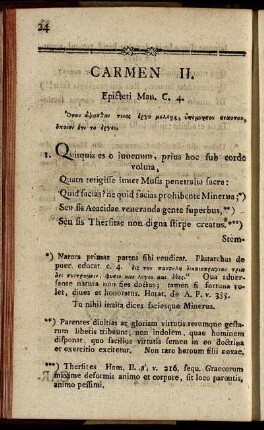 24
CARMEN II.
Epicteti Man. C. 4.
Ὅταν ἅπτεσθαι τινος ἔργου μέλλῃς, ὑπομίμνησκε σεαυτον,
ὁποῖον ἐστι το ἔργον.
1. Quisquis es o iuvenum, prius hoc sub corde
voluta,
Quam tetigisse iuvet Musis penetralia sacra:
Quid facias? ne quid facias prohibente Minerva;*)
Seu sis Aeacidae veneranda gente superbus,**)
Seu sis Thersitae non digna stirpe creatus.***)
Stem-
*) Natura primas partes sibi vendicat. Plutarchus de
puer. educat. c. 4.
Qua adversante
natura non fies doctus; tamen si fortuna
dives et honoratus. Horat. de A. P. v. 385.
Tu nihil invita dices faciesque Minerva.
**) Parentes divitias ac gloriam virtutis rerumque gestarum
liberis tribuunt, non indolem, quae hominem
disponat, quo facilius virtutis semen in eo doctrina
et exercitio excitetur. Non raro heroum filii noxae,
***) Thersites Hom. Il. β'. v. 216. sequ. Graecorum
maxime deformis animo et corpore, sit loco parentis,
animo pessimi.